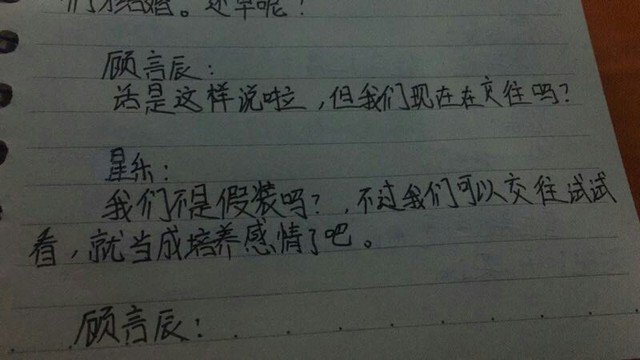 们才结婚。还早呢？
顾言辰：
话是这样说啦，但我们现在在交往吗？
星乐：
我们不是假装吗？，不过我们可以交往试试
看，就当成培养感情了吧。
顾言辰：......